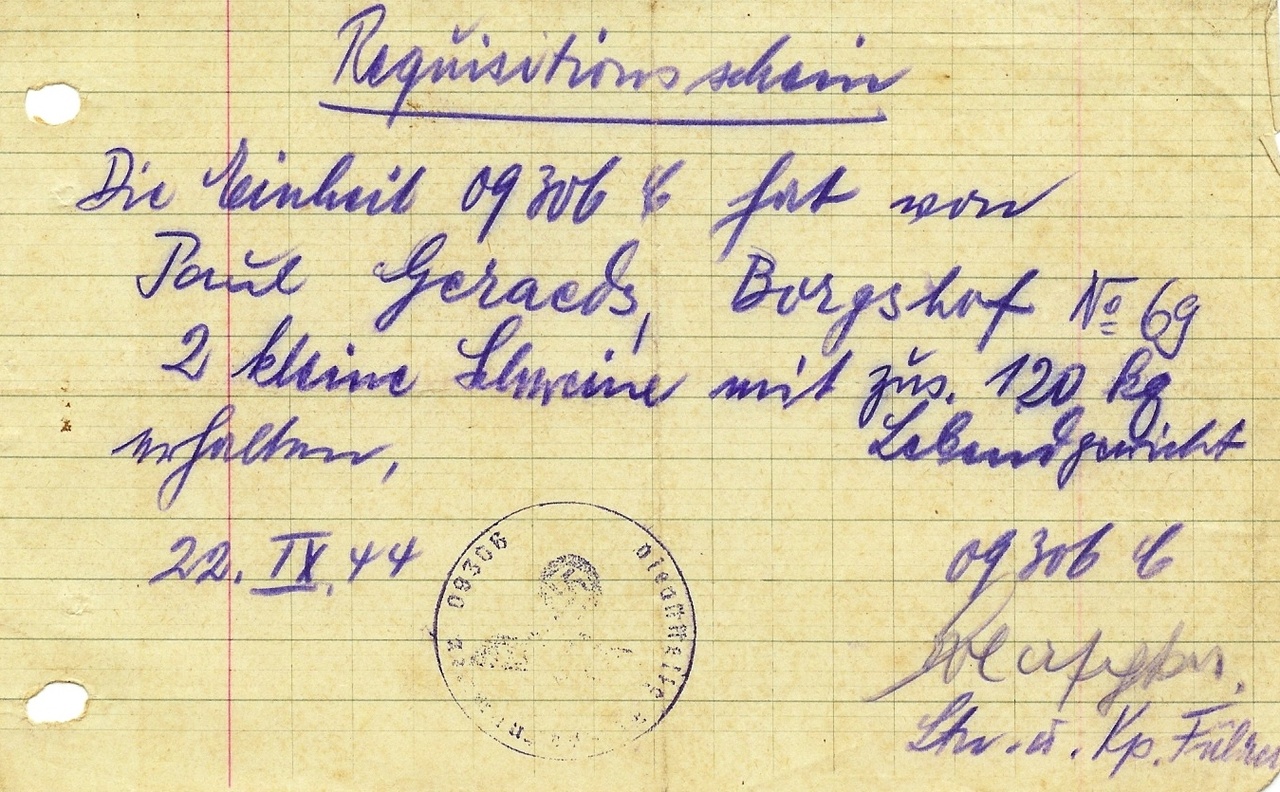 Requisitionsschein
Die Einheit 09306 C hat von
Paul Geraeds, Borgshof No 69
2 kleine Schweine mit zus. 120 kg
erhalten, Lebendgewicht
22. IX. 44
09306 C
Dienststelle 09306
Ltn. u. Kp. Führer